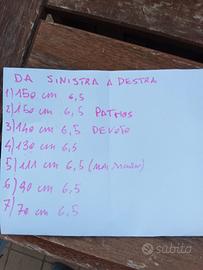 DA SINISTRA A DESTRA
1) 150 cm 6,5
2) 150 cm 6,5 PATMOS
3) 140 cm 6,5 DEVOTO
4) 130 cm 6,5
5) 111 cm 6,5 (mai
6) 90 cm 6,5
7) 70 cm 6,5
subito